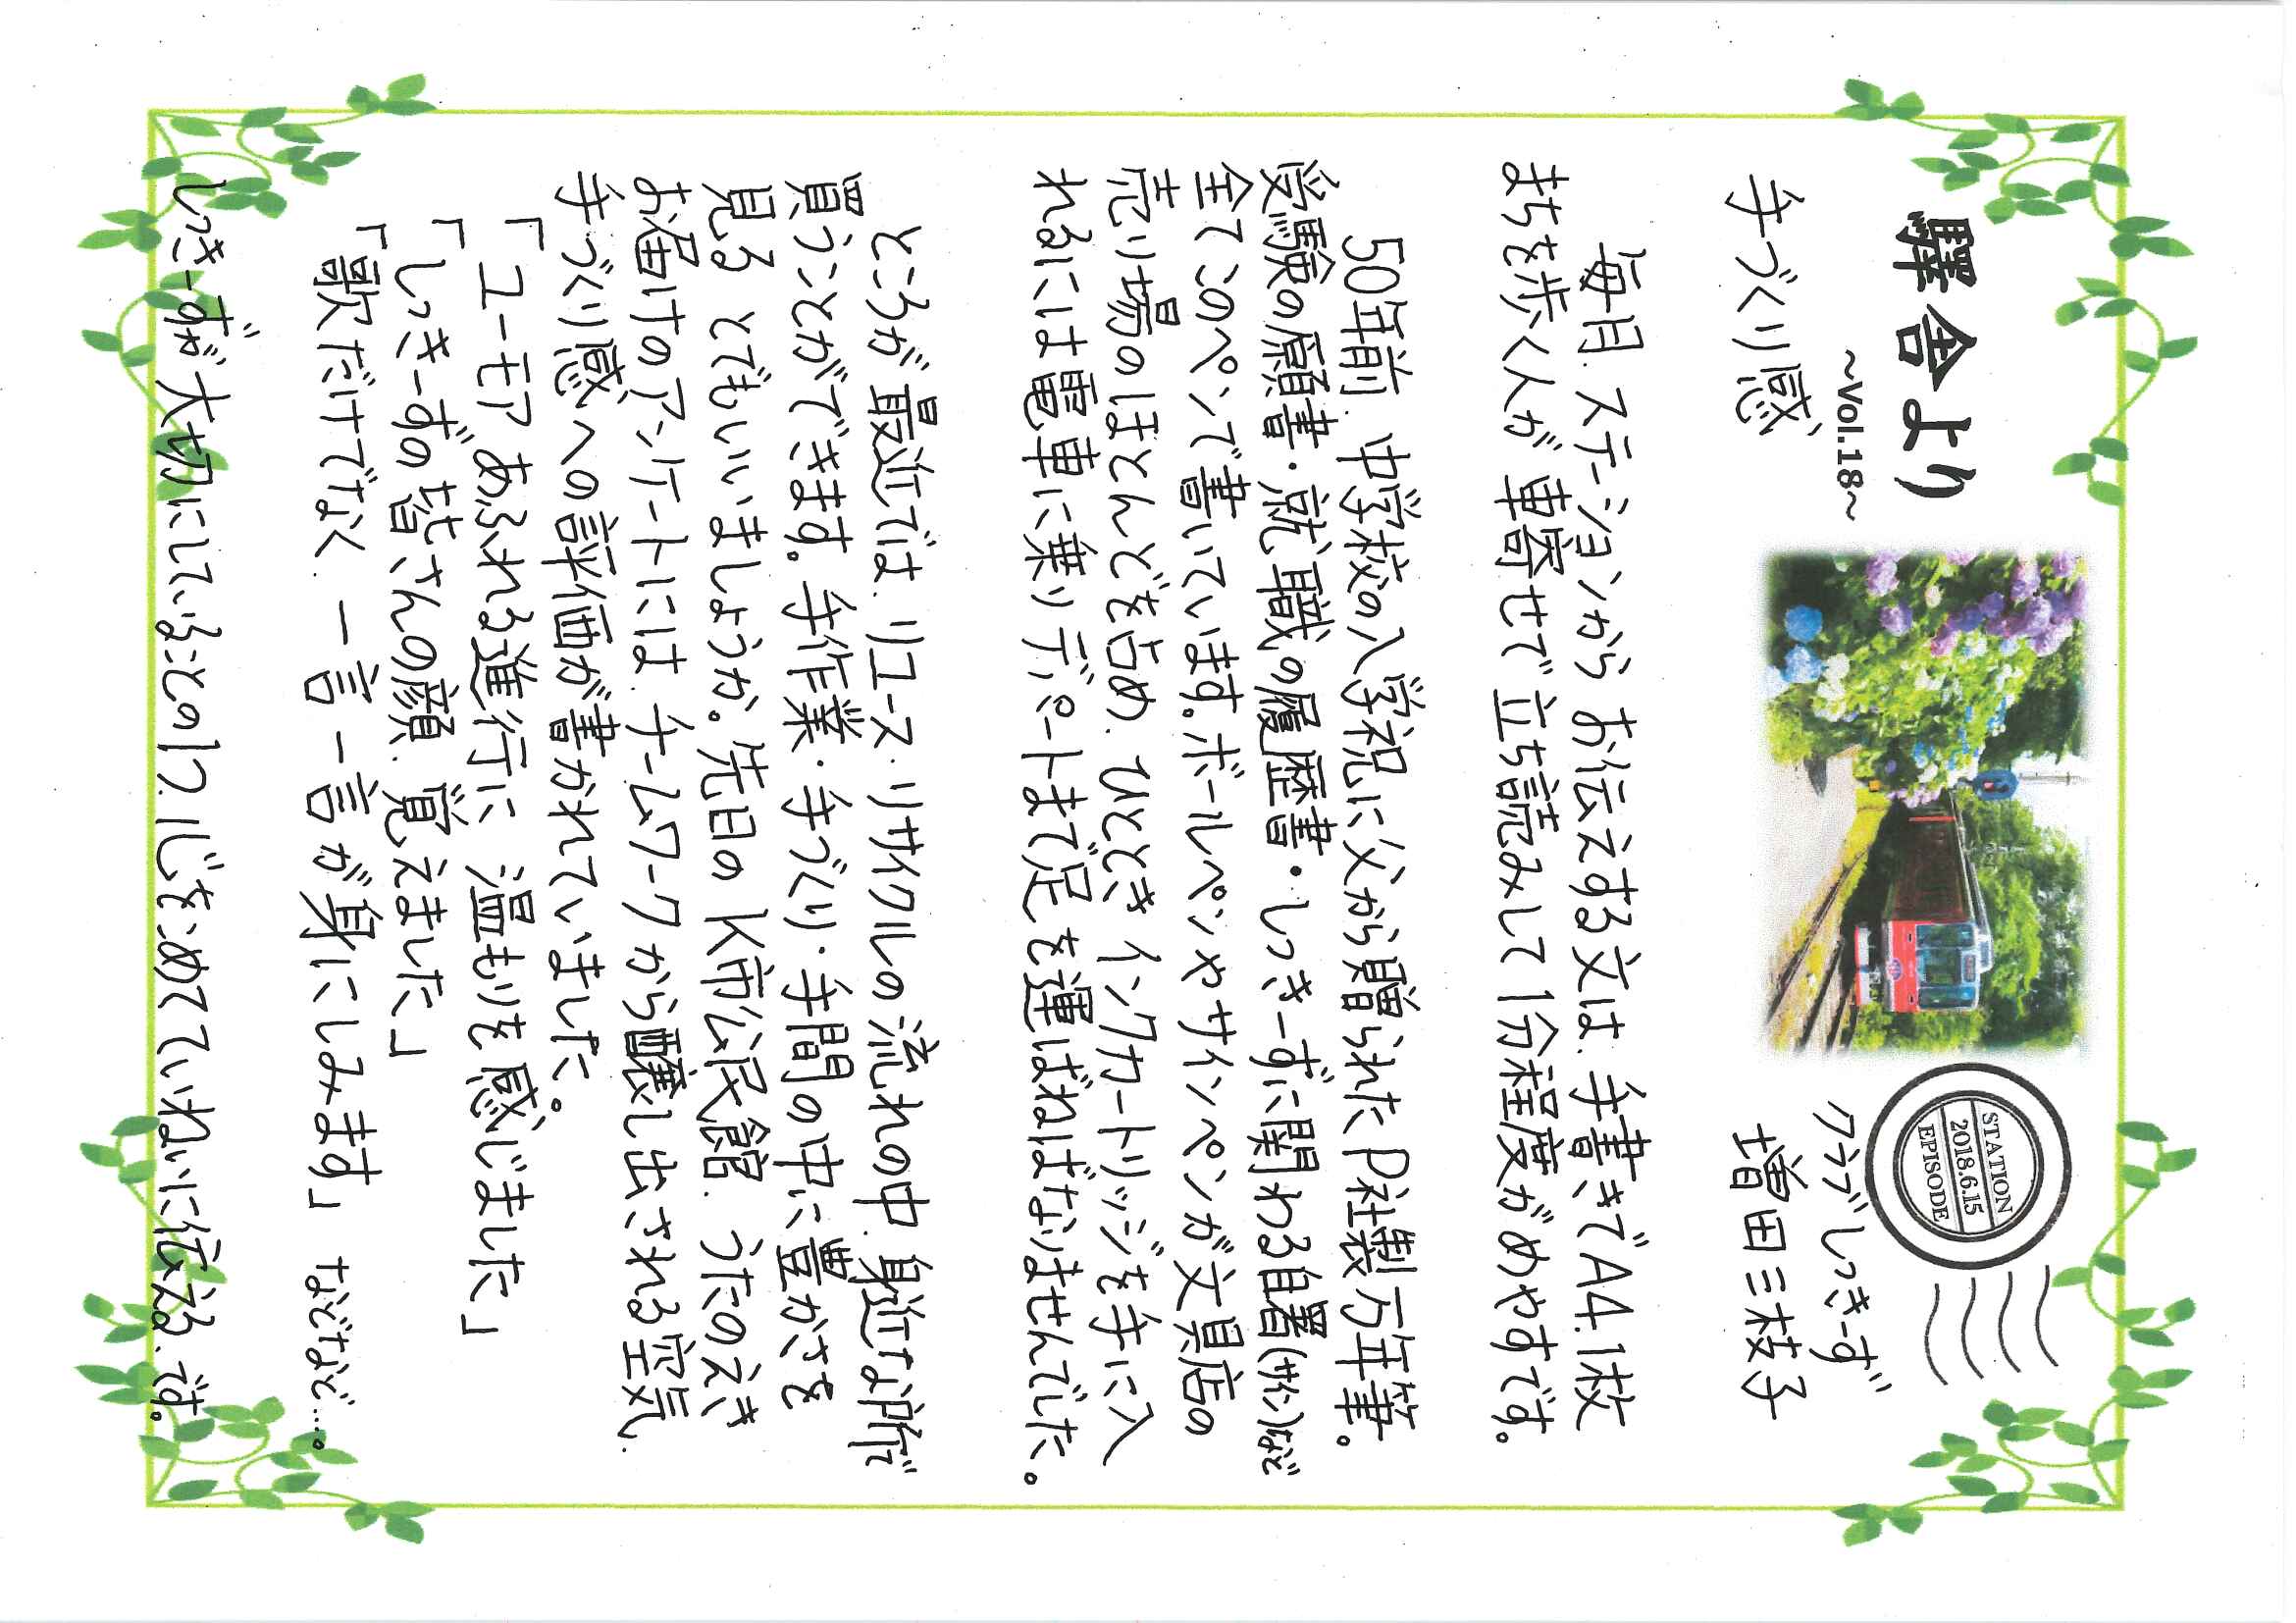 驛舎より
~Vol.18~
STATION
2018.6.15
EPISODE
クラブしっきーず
手づくり感
増田三枝子
毎月、ステーションからお伝えする文は、手書きでA4.1枚
まちを歩く人が車寄せで立ち読みして1分程度がめやすです。
50年前、中学校の入学祝に父から贈られたP社製万年筆。
受験の願書・就職の履歴書・しっきーずに関わる自署(サイン)など
全てこのペンで書いています。ボールペンやサインペンが文具店の
売り場のほとんどを占め、ひととき インクカートリッジを手に入
れるには電車に乗りデパートまで足を運ばねばなりませんでした。
ところが最近では、リユース・リサイクルの流れの中、身近な所で
買うことができます。手作業・手づくり・手間の中に豊かさを
見る とでもいいましょうか。先日のK市公民館、うたのえき
お届けのアンケートには、チームワークから醸し出される空気、
手づくり感への評価が書かれていました。
「ユーモアあふれる進行に 温もりを感じました」
「しっきーずの皆さんの顔、覚えました」
「歌だけでなく、一言一言が身にしみます」 などなど…。
しっきーずが大切にしていることの1つ、心をこめてていねいに伝える、です。